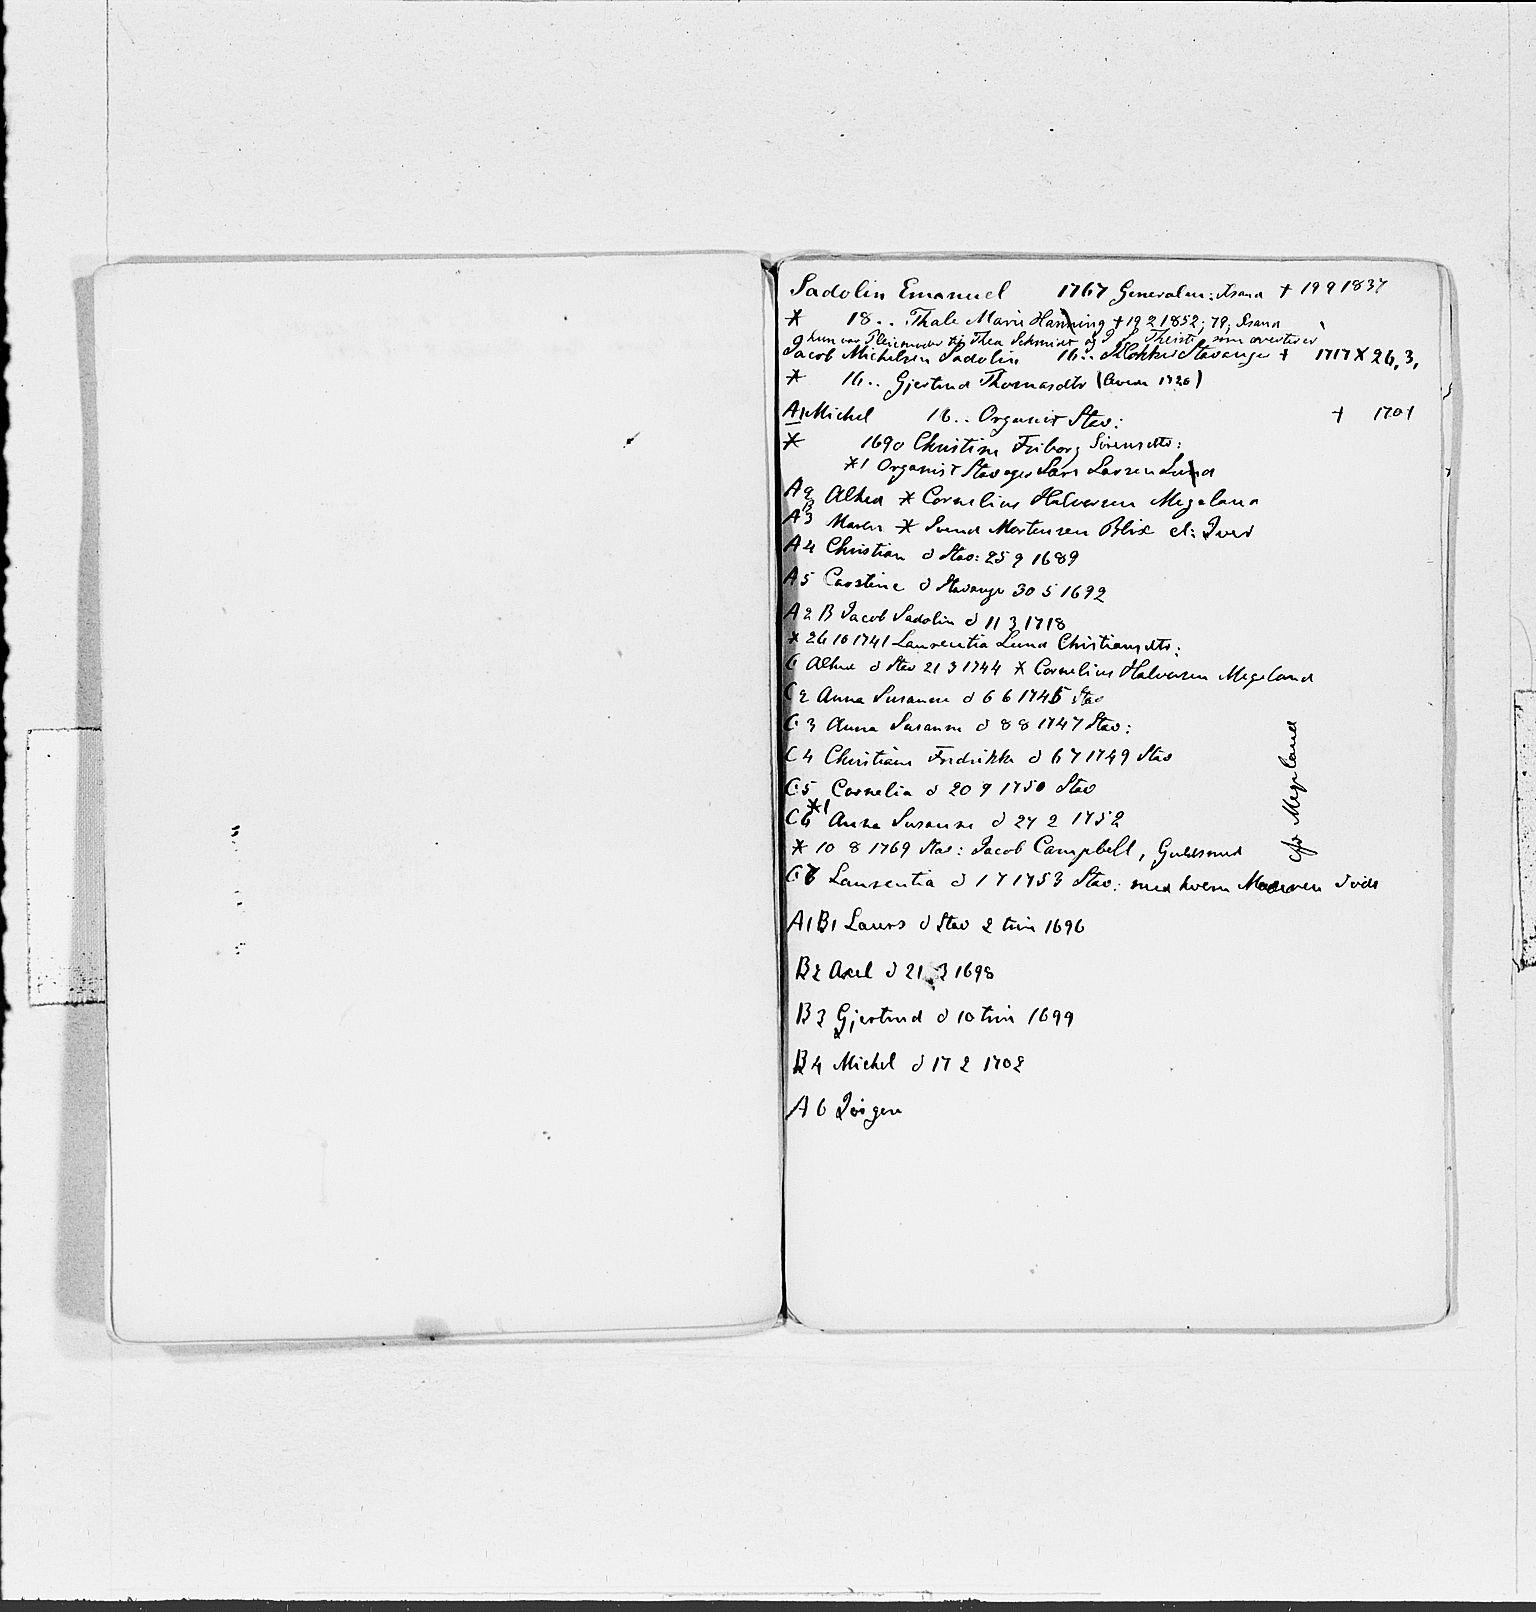 Sadolin Emanuel 1767 Generalm: Krsand + 19 9 1837
* 18.. Thale Marie Hanning + 19 2 1852; 79; Krsand
hun var Pleiemoder til Thea Schmidt og Theiste, som overtever
Jacob Michelsen Sadolin 16.. Klokker Stavanger + 1717 X 26, 3,
* 16.. Gjertrud Thomasdtr (levede 1720)
A1 Michel 16.. Organist Stav: + 1701
* 1690 Christine Friborg Sørensdtr:
*1 Organist Stavager Lars Larsen Lund
A2 Alhed * Cornelius Halvorsen Megeland
A3 Maren * Svend Mortensen Blix
A4 Christian d Stav: 25 9 1689
A5 Carstine d Stavanger 30 5 1692
A2 B Jacob Sadolin d 11 3 1718
* 26 10 1741 Laurentia Lund Christiansdtr:
C Alhed d Stav 21 3 1744 * Cornelius Halvorsen Megeland
C2 Anna Susanne d 6 6 1745 Stav
C3 Anna Susanne d 8 8 1747 Stav:
C4 Christiane Fredrikke d 6 7 1749 Stav
C5 Cornelia d 20 9 1750 Stav
C6 *1 Anna Susanne d 27 2 1752
* 10 8 1769 Stav: Jacob Campbell, Guldsmed
C7 Laurentia d 1 7 1753 Stav: med hvem Moderen døde
cfr Megeland
A1 B1 Laurs d Stav 2 trin 1696
B2 Axel d 21 3 1698
B3 Gjertrud d 10 trin 1699
B4 Michel d 17 2 1702
A6 Jørgen